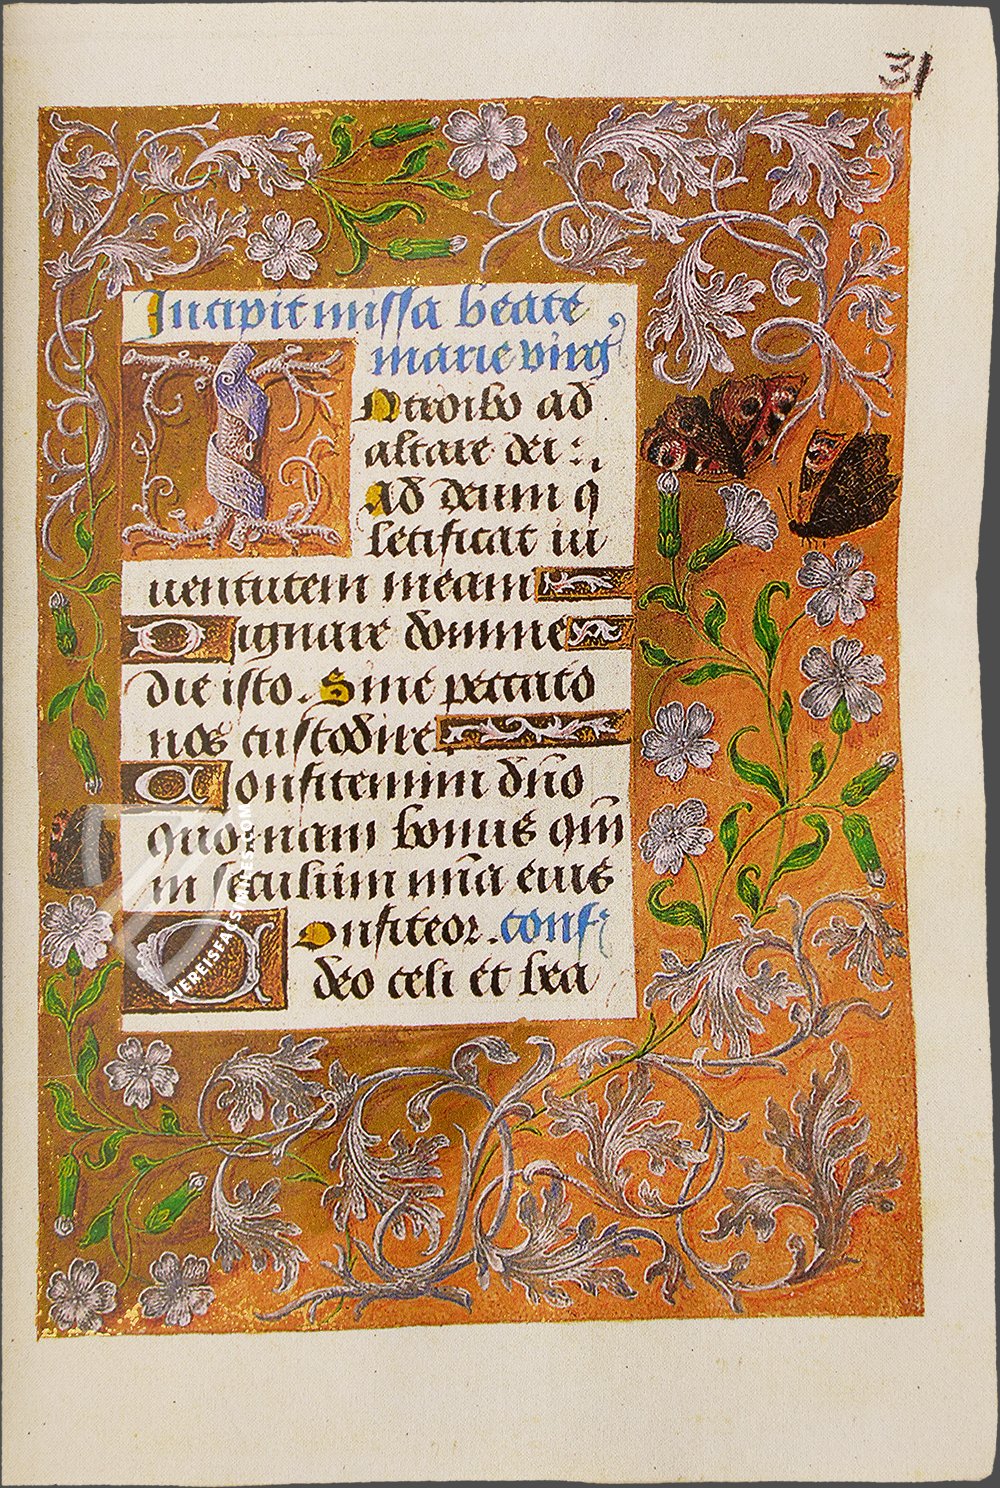 31
Incipit missa beate
marie virg
Introibo ad
altare dei :,
Ad deum q
letificat iu
uentutem meam
Dignare domine
die isto. Sine peccato
nos custodire
Confitemini dño
quoniam bonus qm̄
in seculum mīa eius
Confiteor. conf
deo celi et bea
ZIEREISFACSIMILES.COM